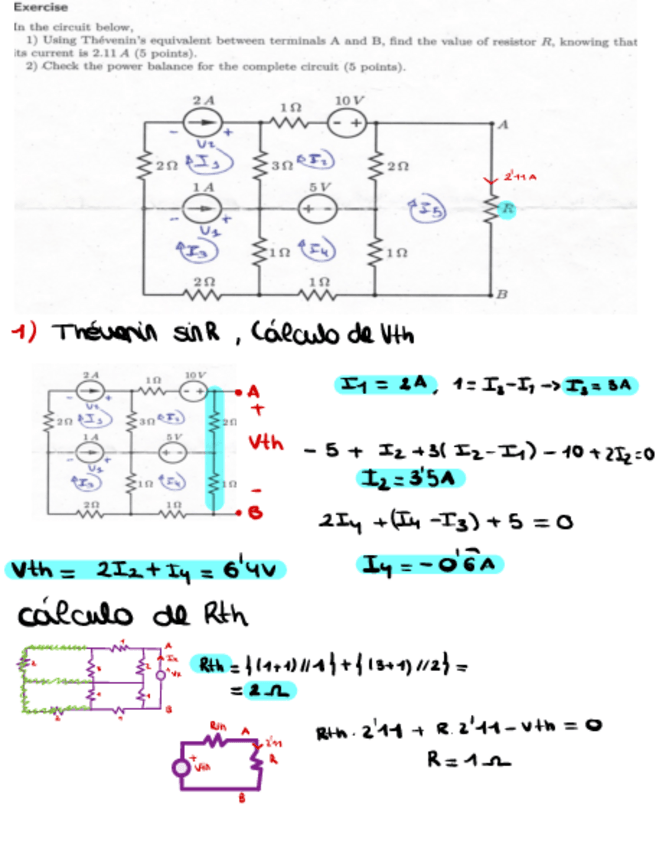 Exercise
In the circuit below,
1) Using Thévenin's equivalent between terminals A and B, find the value of resistor R, knowing that
its current is 2.11 A (5 points).
2) Check the power balance for the complete circuit (5 points).
2 A 1Ω 10 V A
- + - +
U2
2Ω I1 3Ω I2 2Ω 2'11 A
1 A 5 V
- + + I5 R
U1
I3 1Ω I4 1Ω
2Ω 1Ω B
1) Thévenin sin R, Cálculo de Vth
2 A 1Ω 10V A
I1 = 2A, 1 = I3-I1 -> I3 = 3A
2Ω I1 3Ω I2 2Ω +
1A 5V Vth
- 5 + I2 + 3( I2 - I1) - 10 + 2I2 = 0
I3 1Ω I4 1Ω -
I2 = 3'5A
2Ω 1Ω B
2I4 + (I4 - I3) + 5 = 0
Vth = 2I2 + I4 = 6'4V
I4 = - 0'6A
cálculo de Rth
Rth = {(1+1)//1} + {(3+1)//2} =
= 2 Ω
Rth A
2'11
+
Vth R
B
Rth · 2'11 + R · 2'11 - Vth = 0
R = 1 Ω